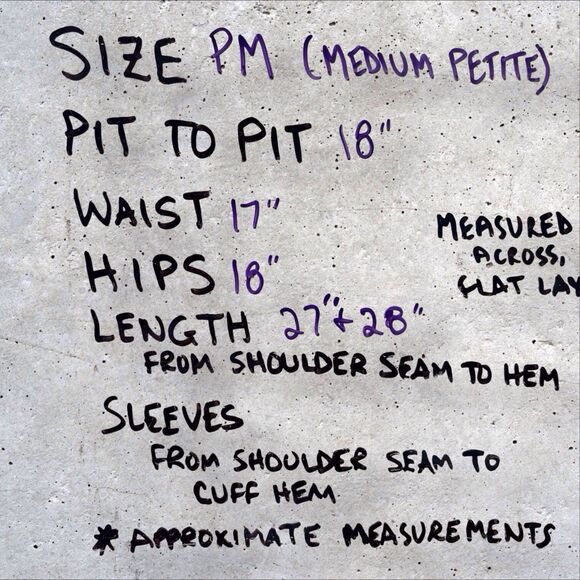 SIZE PM (MEDIUM PETITE)
PIT TO PIT 18"
WAIST 17"
HIPS 18"
MEASURED
ACROSS,
FLAT LAY
LENGTH 27" & 28"
FROM SHOULDER SEAM TO HEM
SLEEVES
FROM SHOULDER SEAM TO
CUFF HEM
* APPROXIMATE MEASUREMENTS